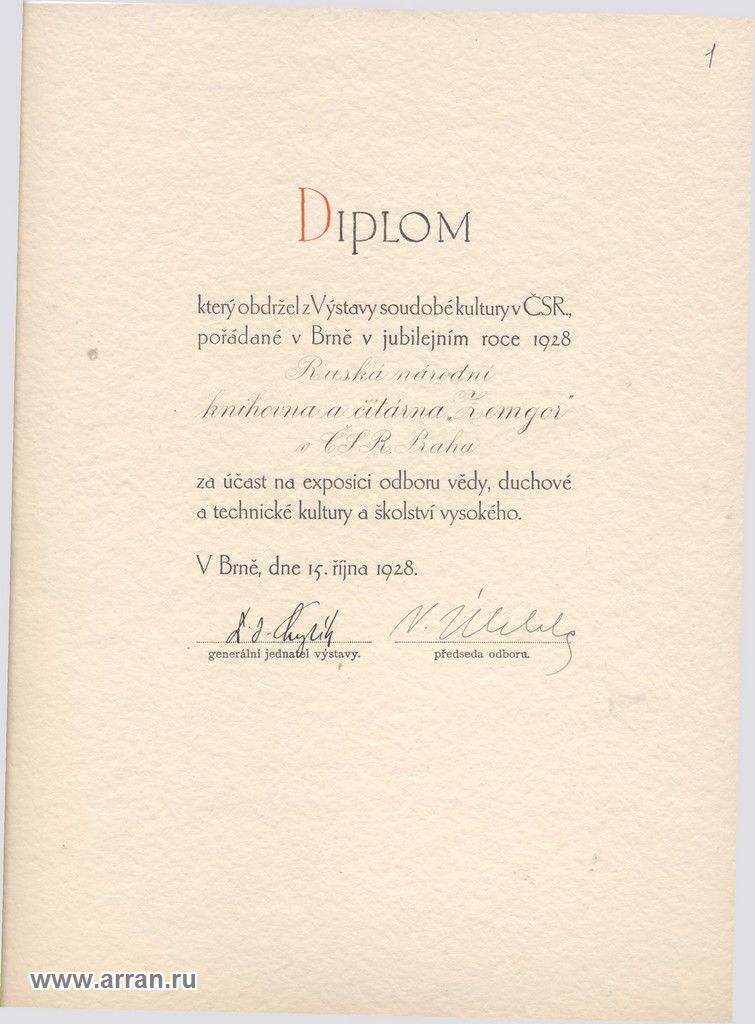 1
DIPLOM
který obdržel z Výstavy soudobé kultury v ČSR.,
pořádané v Brně v jubilejním roce 1928
Ruská národní
knihovna a čítárna „Zemgor"
v ČSR. Praha
za účast na exposici odboru vědy, duchové
a technické kultury a školství vysokého.
V Brně, dne 15. října 1928.
generální jednatel výstavy.
předseda odboru.
www.arran.ru